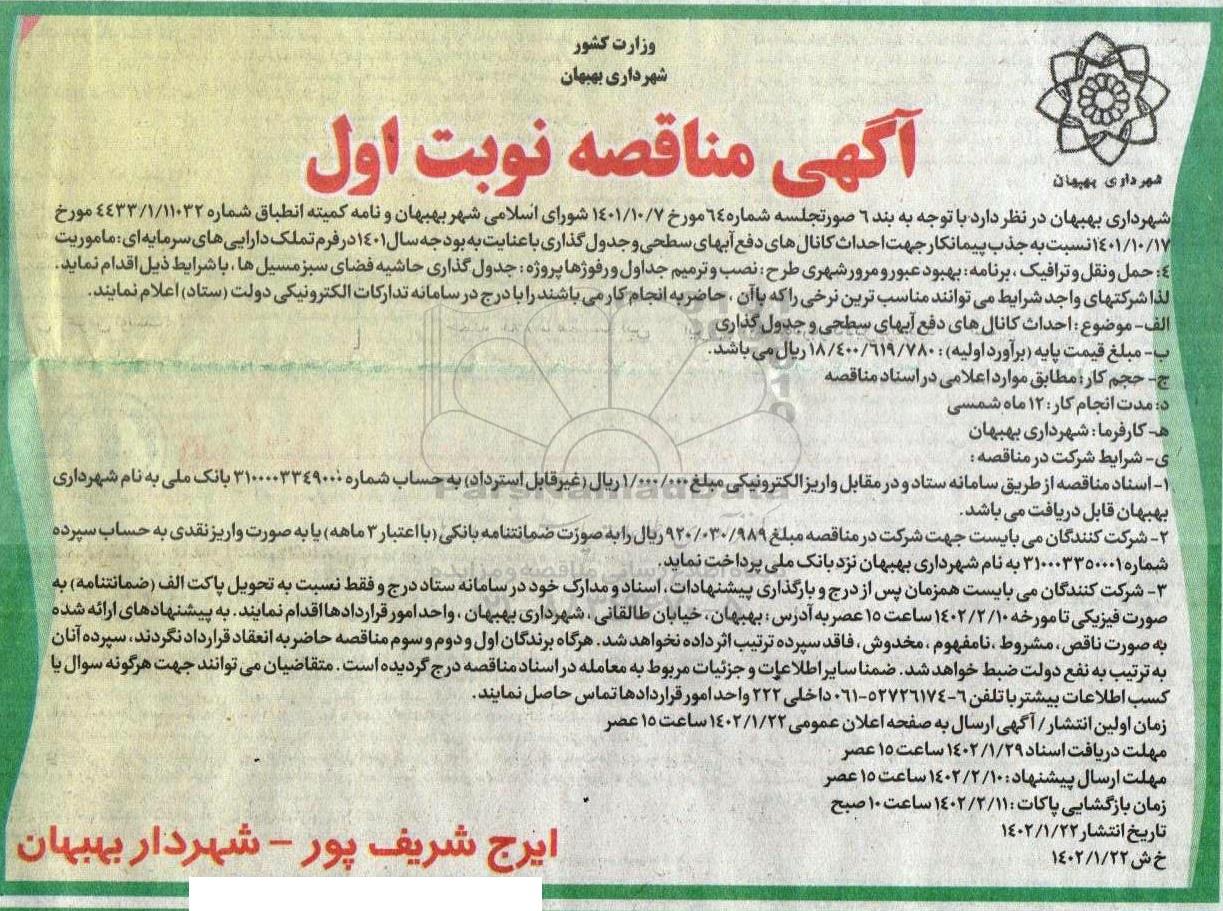 وزارت کشور
شهرداری بهبهان
شهرداری بهبهان
آگهی مناقصه نوبت اول
شهرداری بهبهان در نظر دارد با توجه به بند ٦ صورتجلسه شماره ٦٤ مورخ ١٤٠١/١٠/٧ شورای اسلامی شهر بهبهان و نامه کمیته انطباق شماره ٤٤٣٣/١/١١٠٣٢ مورخ
١٤٠١/١٠/١٧ نسبت به جذب پیمانکار جهت احداث کانال های دفع آبهای سطحی و جدول گذاری با عنایت به بودجه سال ١٤٠١ در فرم تملک دارایی های سرمایه ای: ماموریت
٤: حمل ونقل و ترافیک ، برنامه: بهبود عبور و مرور شهری طرح: نصب و ترمیم جداول و رفوژها پروژه: جدول گذاری حاشیه فضای سبز مسیل ها ، با شرایط ذیل اقدام نماید.
لذا شرکتهای واجد شرایط می توانند مناسب ترین نرخی را که با آن ، حاضر به انجام کار می باشند را با درج در سامانه تدارکات الکترونیکی دولت (ستاد) اعلام نمایند.
الف- موضوع: احداث کانال های دفع آبهای سطحی و جدول گذاری
ب- مبلغ قیمت پایه (برآورد اولیه): ١٨/٤٠٠/٦١٩/٧٨٠ ریال می باشد.
ج- حجم کار: مطابق موارد اعلامی در اسناد مناقصه
د: مدت انجام کار: ١٢ ماه شمسی
هـ- کارفرما: شهرداری بهبهان
ی- شرایط شرکت در مناقصه:
١- اسناد مناقصه از طریق سامانه ستاد و در مقابل واریز الکترونیکی مبلغ ١/٠٠٠/٠٠٠ ریال (غیرقابل استرداد) به حساب شماره ٣١٠٠٠٠٣٣٤٩٠٠٠ بانک ملی به نام شهرداری
بهبهان قابل دریافت می باشد.
٢- شرکت کنندگان می بایست جهت شرکت در مناقصه مبلغ ٩٢٠/٠٣٠/٩٨٩ ریال را به صورت ضمانتنامه بانکی (با اعتبار ٣ ماهه) یا به صورت واریز نقدی به حساب سپرده
شماره ٣١٠٠٠٣٣٥٠٠٠١ به نام شهرداری بهبهان نزد بانک ملی پرداخت نماید.
٣- شرکت کنندگان می بایست همزمان پس از درج و بارگذاری پیشنهادات ، اسناد و مدارک خود در سامانه ستاد درج و فقط نسبت به تحویل پاکت الف (ضمانتنامه) به
صورت فیزیکی تا مورخه ١٤٠٢/٢/١٠ ساعت ١٥ عصر به آدرس: بهبهان ، خیابان طالقانی ، شهرداری بهبهان ، واحد امور قراردادها اقدام نمایند. به پیشنهادهای ارائه شده
به صورت ناقص، مشروط ، نامفهوم ، مخدوش ، فاقد سپرده ترتیب اثر داده نخواهد شد. هرگاه برندگان اول و دوم و سوم مناقصه حاضر به انعقاد قرارداد نگردند، سپرده آنان
به ترتیب به نفع دولت ضبط خواهد شد. ضمنا سایر اطلاعات و جزئیات مربوط به معامله در اسناد مناقصه درج گردیده است . متقاضیان می توانند جهت هرگونه سوال یا
کسب اطلاعات بیشتر با تلفن ٦-٠٦١-٥٢٧٢٦١٧٤ داخلی ٢٢٢ واحد امور قراردادها تماس حاصل نمایند.
زمان اولین انتشار/ آگهی ارسال به صفحه اعلان عمومی ١٤٠٢/١/٢٢ ساعت ١٥ عصر
مهلت دریافت اسناد ١٤٠٢/١/٢٩ ساعت ١٥ عصر
مهلت ارسال پیشنهاد: ١٤٠٢/٢/١٠ ساعت ١٥ عصر
زمان بازگشایی پاکات: ١٤٠٢/٢/١١ ساعت ١٠ صبح
تاریخ انتشار ١٤٠٢/١/٢٢
خ ش ١٤٠٢/١/٢٢
ایرج شریف پور - شهردار بهبهان
ParsNamadData